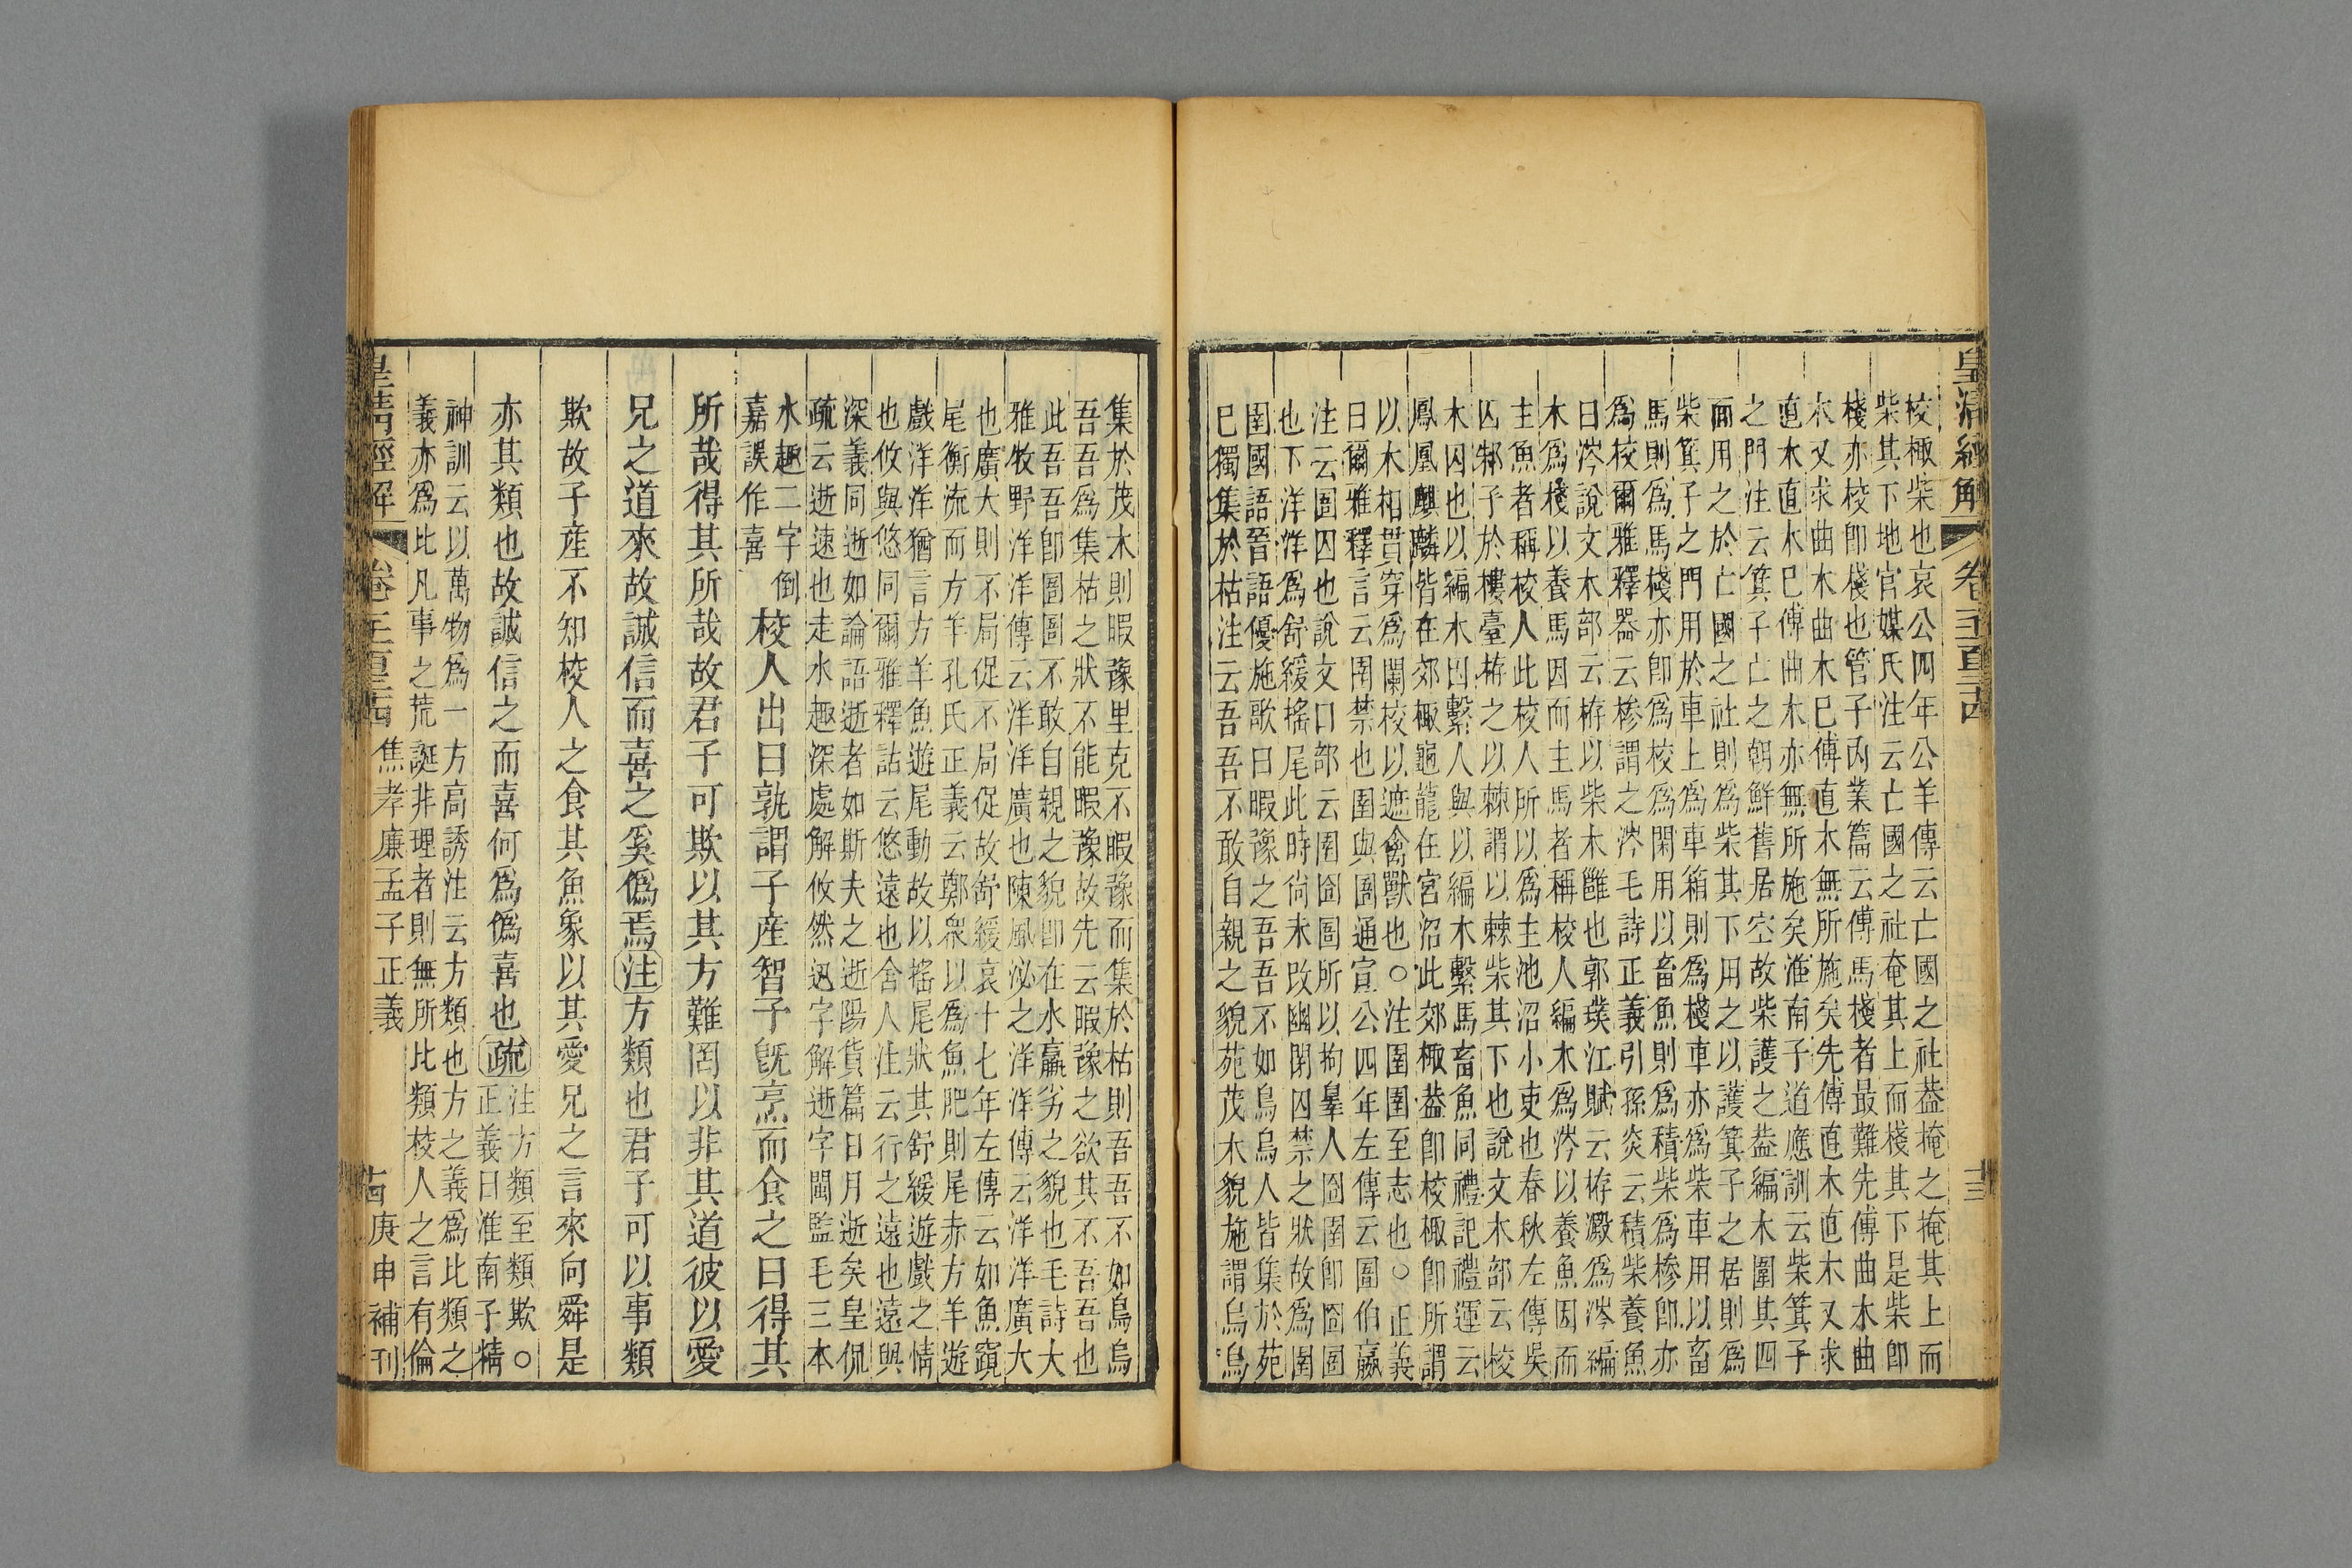 皇清經解 卷千一百二十四 十三
校棷柴也哀公四年公羊傳云亡國之社葢掩之掩其上而
柴其下地官媒氏注云亡國之社奄其上而棧其下是柴卽
棧亦校卽棧也管子內業篇云傅馬棧者最難先傅曲木曲
木又求曲木曲木巳傅直木無所施矣先傅直木直木又求
直木直木巳傅曲木亦無所施矣淮南子道應訓云柴箕子
之門注云箕子亡之朝鮮舊居空故柴護之葢編木圍其四
面用之於亡國之社則爲柴其下用之以護箕子之居則爲
柴箕子之門用於車上爲車箱則爲棧車亦爲柴車用以畜
馬則爲馬棧亦卽爲校爲閑用以畜魚則爲積柴爲槮卽亦
爲校爾雅釋器云槮謂之涔毛詩正義引孫炎云積柴養魚
曰涔說文木部云栫以柴木雝也郭璞江賦云栫澱爲涔編
木爲棧以養馬因而主馬者稱校人編木爲涔以養魚因而
主魚者稱校人此校人所以爲主池沼小吏也春秋左傳吳
囚邾子於樓臺栫之以棘謂以棘柴其下也說文木部云校
木囚也以編木囚繫人與以編木繫馬畜魚同禮記禮運云
鳳凰麒麟皆在郊棷龜龍在宮沼此郊棷葢卽校棷卽所謂
以木相貫穿爲闌校以遮禽獸也○注圉圉至志也○正義
曰爾雅釋言云圉禁也圉與圄通宣公四年左傳云圄伯嬴
注云圄囚也說文口部云圉囹圄所以拘辠人囹圉卽囹圄
也下洋洋爲舒緩搖尾此時尙未改幽閉囚禁之狀故爲圉
圉國語晉語優施歌曰暇豫之吾吾不如鳥烏人皆集於苑
巳獨集於枯注云吾吾不敢自親之貌苑茂木貌施謂鳥烏
集於茂木則暇豫里克不暇豫而集於枯則吾吾不如鳥烏
吾吾爲集枯之狀不能暇豫故先云暇豫之欲其不吾吾也
此吾吾卽圄圄不敢自親之貌卽在水羸劣之貌也毛詩大
雅牧野洋洋傳云洋洋廣也陳風泌之洋洋傳云洋洋廣大
也廣大則不局促不局促故舒緩哀十七年左傳云如魚竀
尾衡流而方羊孔氏正義云鄭衆以爲魚肥則尾赤方羊遊
戲洋洋猶言方羊魚遊尾動故以搖尾狀其舒緩遊戲之情
也攸與悠同爾雅釋詁云悠遠也舍人注云行之遠也遠與
深義同逝如論語逝者如斯夫之逝陽貨篇日月逝矣皇侃
疏云逝速也走水趣深處解攸然迅字解逝字閩監毛三本
水趣二字倒
嘉誤作喜
校人出曰孰謂子產智予旣烹而食之曰得其
所哉得其所哉故君子可欺以其方難罔以非其道彼以愛
兄之道來故誠信而喜之奚僞焉注方類也君子可以事類
欺故子產不知校人之食其魚象以其愛兄之言來向舜是
亦其類也故誠信之而喜何爲僞喜也疏
注方類至類欺○
正義曰淮南子精
神訓云以萬物爲一方高誘注云方類也方之義爲比類之
義亦爲比凡事之荒誕非理者則無所比類校人之言有倫
皇清經解 卷千一百二十四 焦孝廉孟子正義 十四 庚申補刊